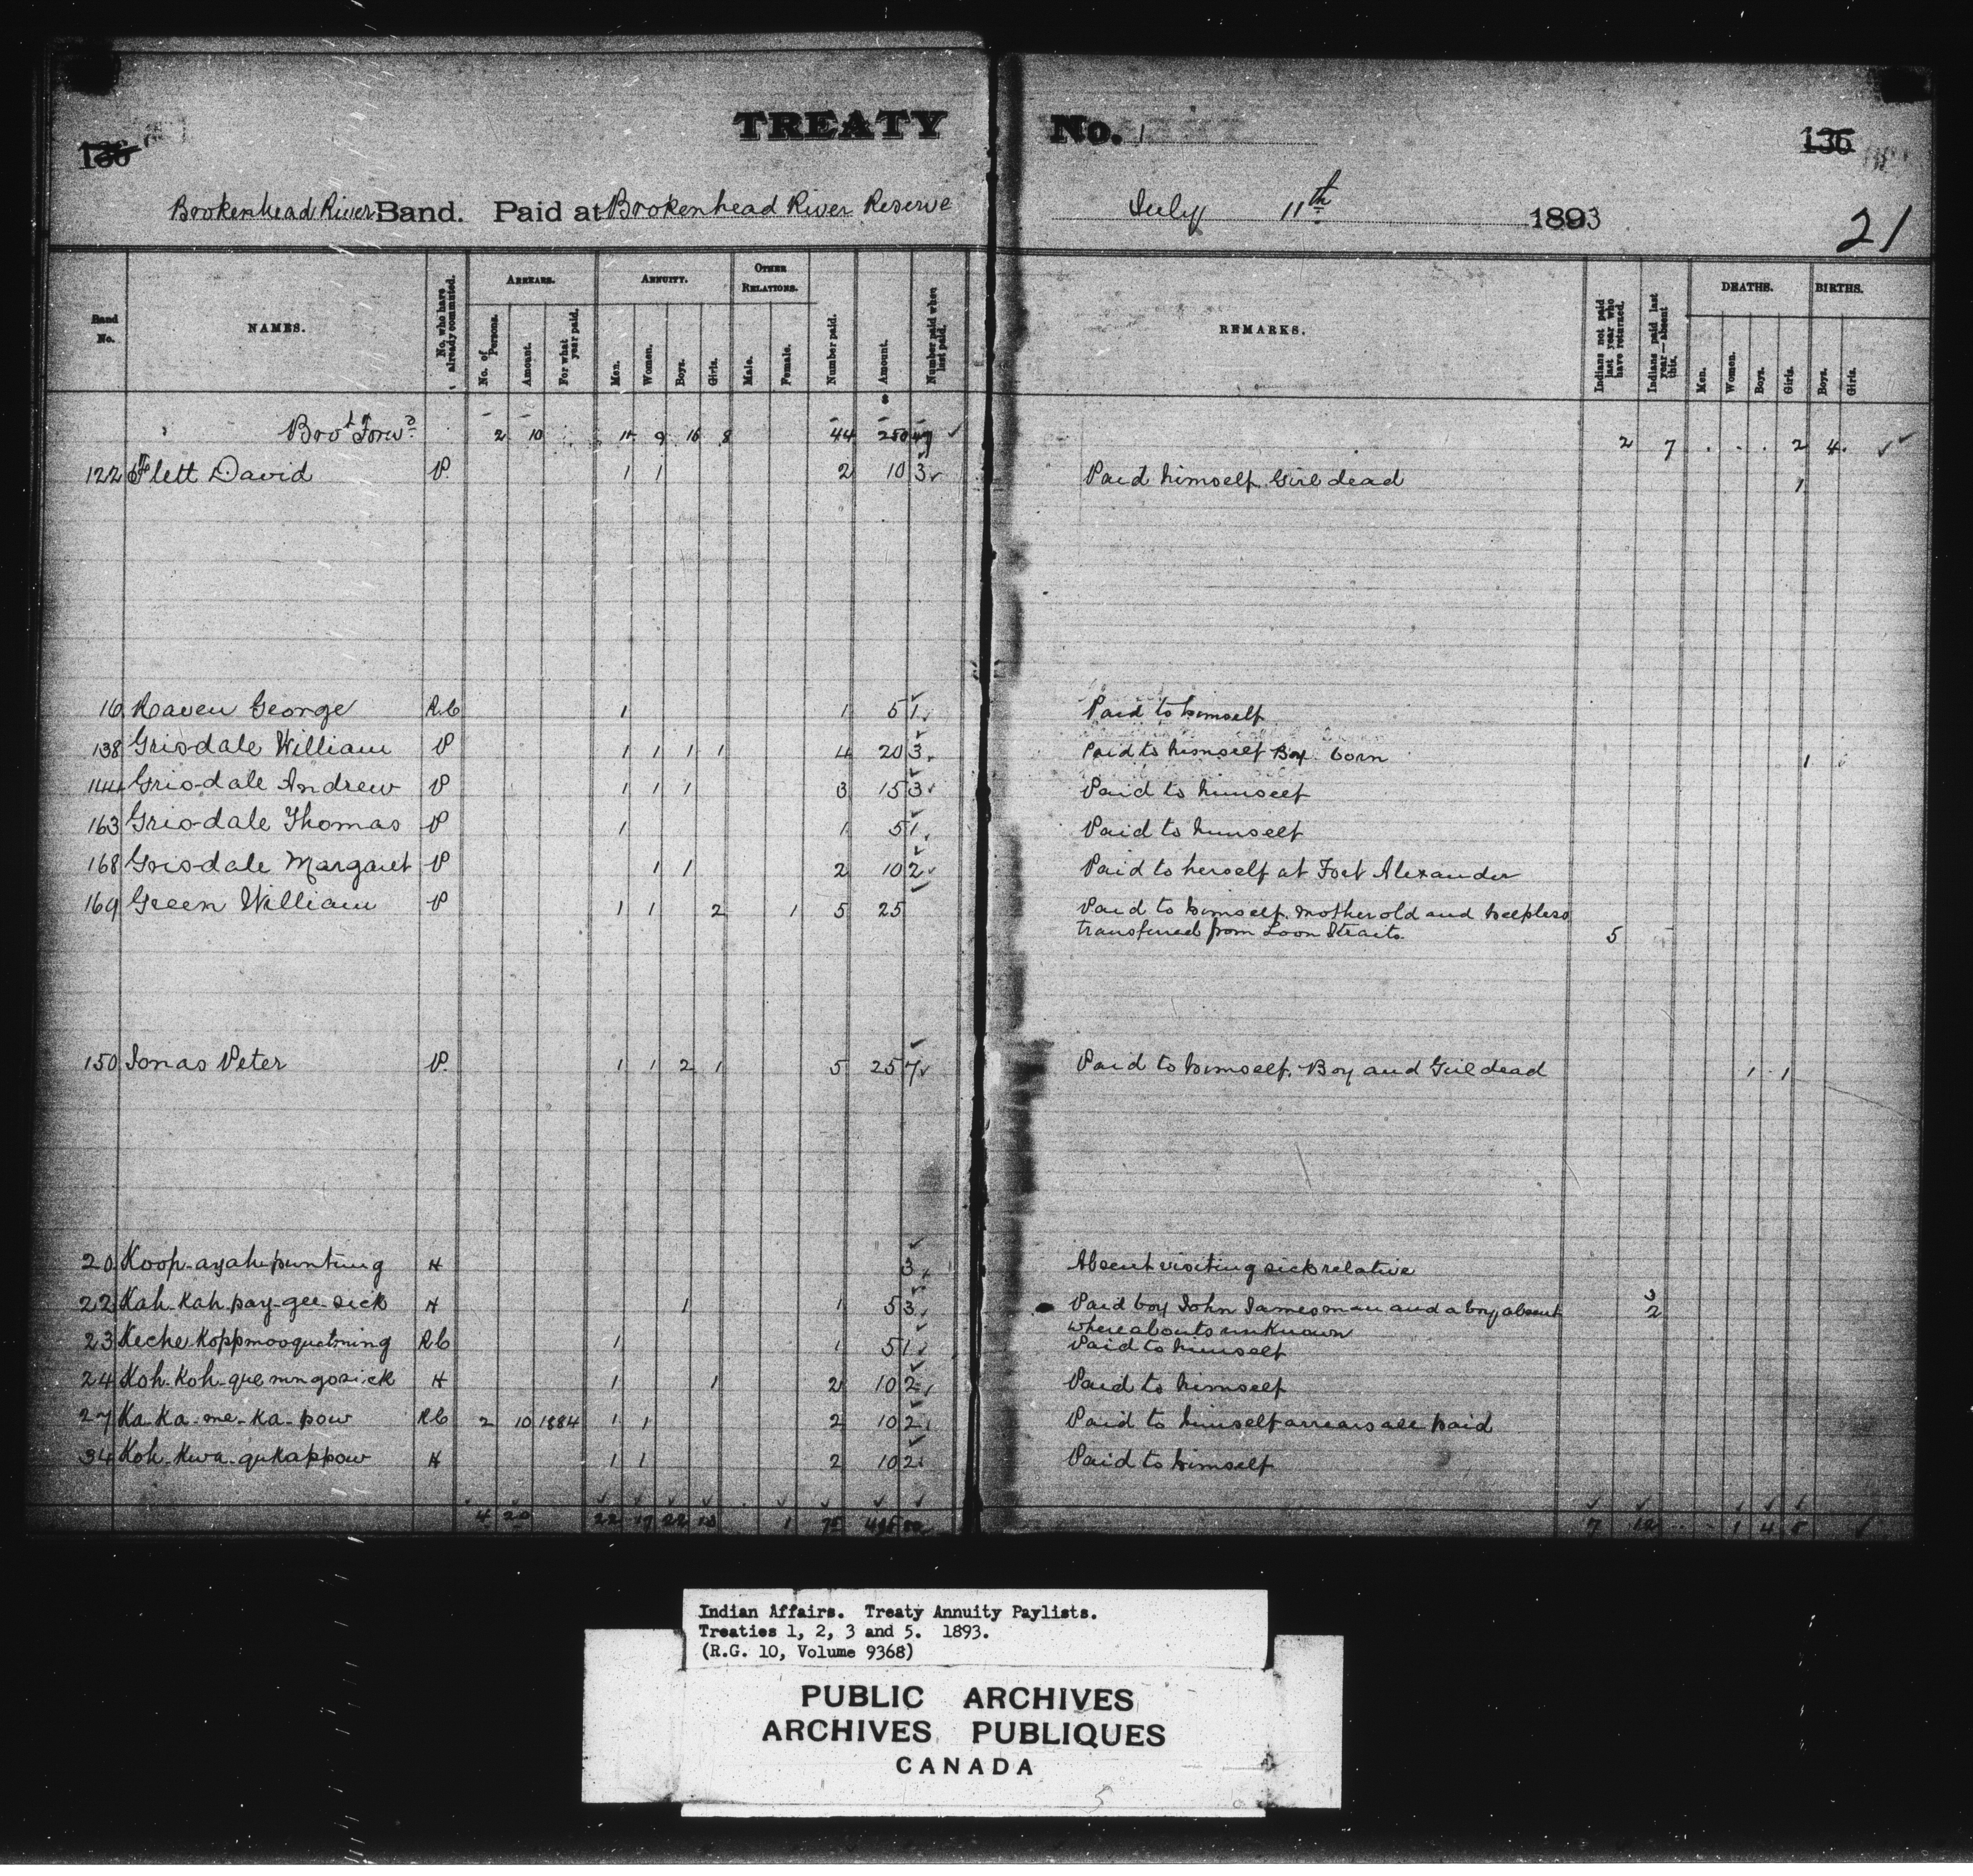 TREATY No. 1
136 136
Brokenhead River Band. Paid at Brokenhead River Reserve July 11th 1893
21
Band No. NAMES. No. who have already commuted. ARREARS. No. of Persons. Amount. For what year paid. ANNUITY. Men. Women. Boys. Girls. OTHER RELATIONS. Male. Female. Number paid. Amount. Number paid when last paid. REMARKS. Indians not paid last year who have returned. Indians paid last year—absent this. DEATHS. Men. Women. Boys. Girls. BIRTHS. Boys. Girls.
Bro't Forw'd 2 10 11 9 16 8 44 250 49 2 7 2 4
122 Flett David P. 1 1 2 10 3 Paid himself. Girl dead 1
16 Raven George R.C 1 1 5 1 Paid to himself
138 Grisdale William P 1 1 1 1 4 20 3 Paid to himself Boy born 1
144 Grisdale Andrew P 1 1 1 3 15 3 Paid to himself
163 Grisdale Thomas P 1 1 5 1 Paid to himself
168 Grisdale Margaret P 1 1 2 10 2 Paid to herself at Fort Alexander
169 Green William P 1 1 2 1 5 25 Paid to himself. Mother old and helpless
transferred from Loon Straits. 5
150 Jonas Peter P. 1 1 2 1 5 25 7 Paid to himself. Boy and Girl dead 1 1
20 Koop-ayah-punting H 3 Absent visiting sick relative 3
22 Kah-Kah-pay-gee-sick H 1 1 5 3 Paid boy John James man and a boy absent 2
whereabouts unknown
23 Keche Koppmooquatming RC 1 1 5 1 Paid to himself
24 Koh-Koh-que ningosick H 1 1 2 10 2 Paid to himself
27 Ka-Ka-me-Ka-pow RC 2 10 1884 1 1 2 10 2 Paid to himself arrears all paid
34 Koh-Kwa-gukappow H 1 1 2 10 2 Paid to himself
4 20 22 17 22 13 1 75 7 12 1 4
Indian Affairs. Treaty Annuity Paylists.
Treaties 1, 2, 3 and 5. 1893.
(R.G. 10, Volume 9368)
PUBLIC ARCHIVES
ARCHIVES PUBLIQUES
CANADA